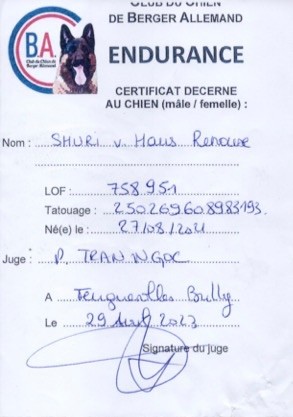 CLUB DU CHIEN
DE BERGER ALLEMAND
B.A.
Club du Chien de
Berger Allemand
ENDURANCE
CERTIFICAT DECERNE
AU CHIEN (mâle / femelle) :
Nom : SHURI v. Haus Renouse
LOF : 758951
Tatouage : 250269608983193
Né(e) le : 27/08/2021
Juge : P. TRAN NGOC
A Bully
Le 29 2023
Signature du juge